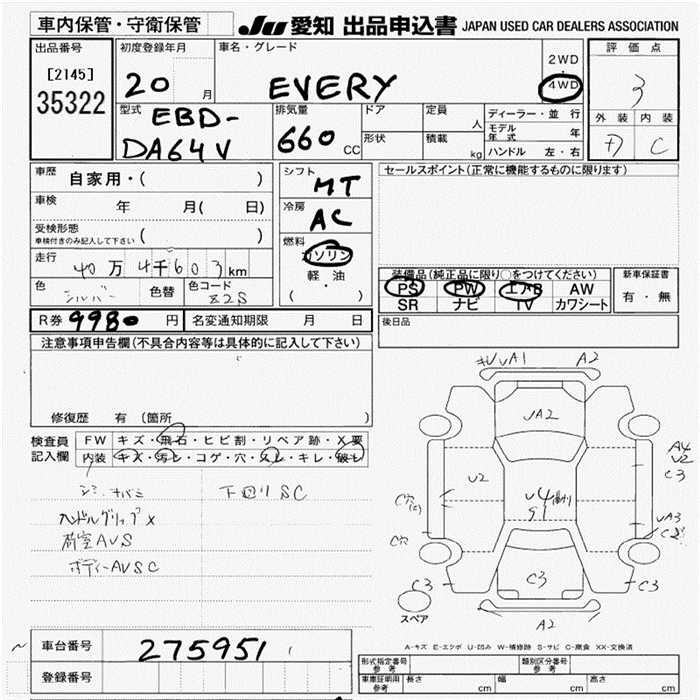 車内保管・守衛保管
JU 愛知 出品申込書 JAPAN USED CAR DEALERS ASSOCIATION
出品番号
[2145]
35322
初度登録年月
20 月
車名・グレード
EVERY
2WD
・
4WD
評価点
3
外装 内装
C
型式
EBD-
DA64V
排気量
660 CC
ドア
定員
人
形状
積載
kg
ディーラー・並行
モデル年式 年
ハンドル 左・右
車歴
自家用・( )
車検
年 月( 日)
受検形態
車検付きのみ記入して下さい ( )
走行
40万4千603km
色
シルバー
色替
色コード
Z2S
シフト
MT
冷房
AC
燃料
ガソリン
軽・油
( )
セールスポイント(正常に機能するものに限ります)
装備品(純正品に限り○をつけてください)
PS PW エアB AW
SR ナビ TV カワシート
新車保証書
有・無
R券 9980 円
名変通知期限 月 日
後日品
注意事項申告欄(不具合内容等は具体的に記入して下さい)
修復歴 有 (箇所
検査員
記入欄
FW キズ・飛石・ヒビ割・リペア跡・X要
内装 キズ・汚レ・コゲ・穴・スレ・キレ・破レ
下回りSC
ハンドルグリップX
荷室AVS
ボディーAVSC
A2
UA2
U2
U4
S1
C3
A4
U2
C3
UA3
C2
C穴
C穴
C3
C3
A2
スペア
A-キズ E-エクボ U-凹み W-補修跡 S-サビ C-腐食 XX-交換済
車台番号
275951
登録番号
形式指定番号
参考
類別区分番号
参考
車庫証明用
参考
長さ cm
幅 cm
高さ cm